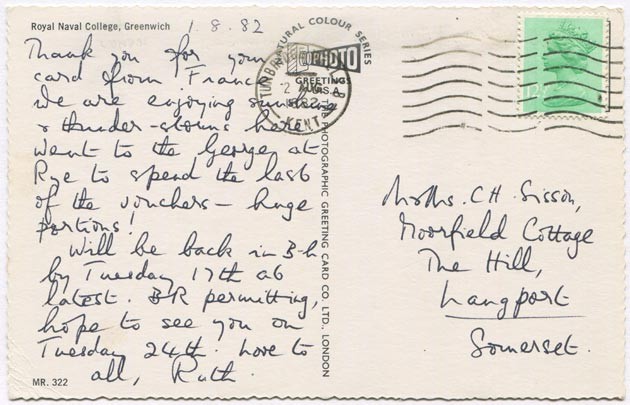 Royal Naval College, Greenwich
1.8.82
Thank you for your
card from France
We are enjoying sunshine
& thunder-storms here
went to the George at
Rye to spend the last
of the vouchers – huge
portions!
Will be back in B-h
by Tuesday 17th at
latest. B.R permitting,
hope to see you on
Tuesday 24th. Love to
all, Ruth.
MR. 322
NATURAL COLOUR SERIES
PHOTO
GREETINGS
PHOTOGRAPHIC GREETING CARD CO. LTD., LONDON
KENT
Mr & Mrs. C H. Sisson,
Moorfield Cottage
The Hill,
Langport
Somerset.